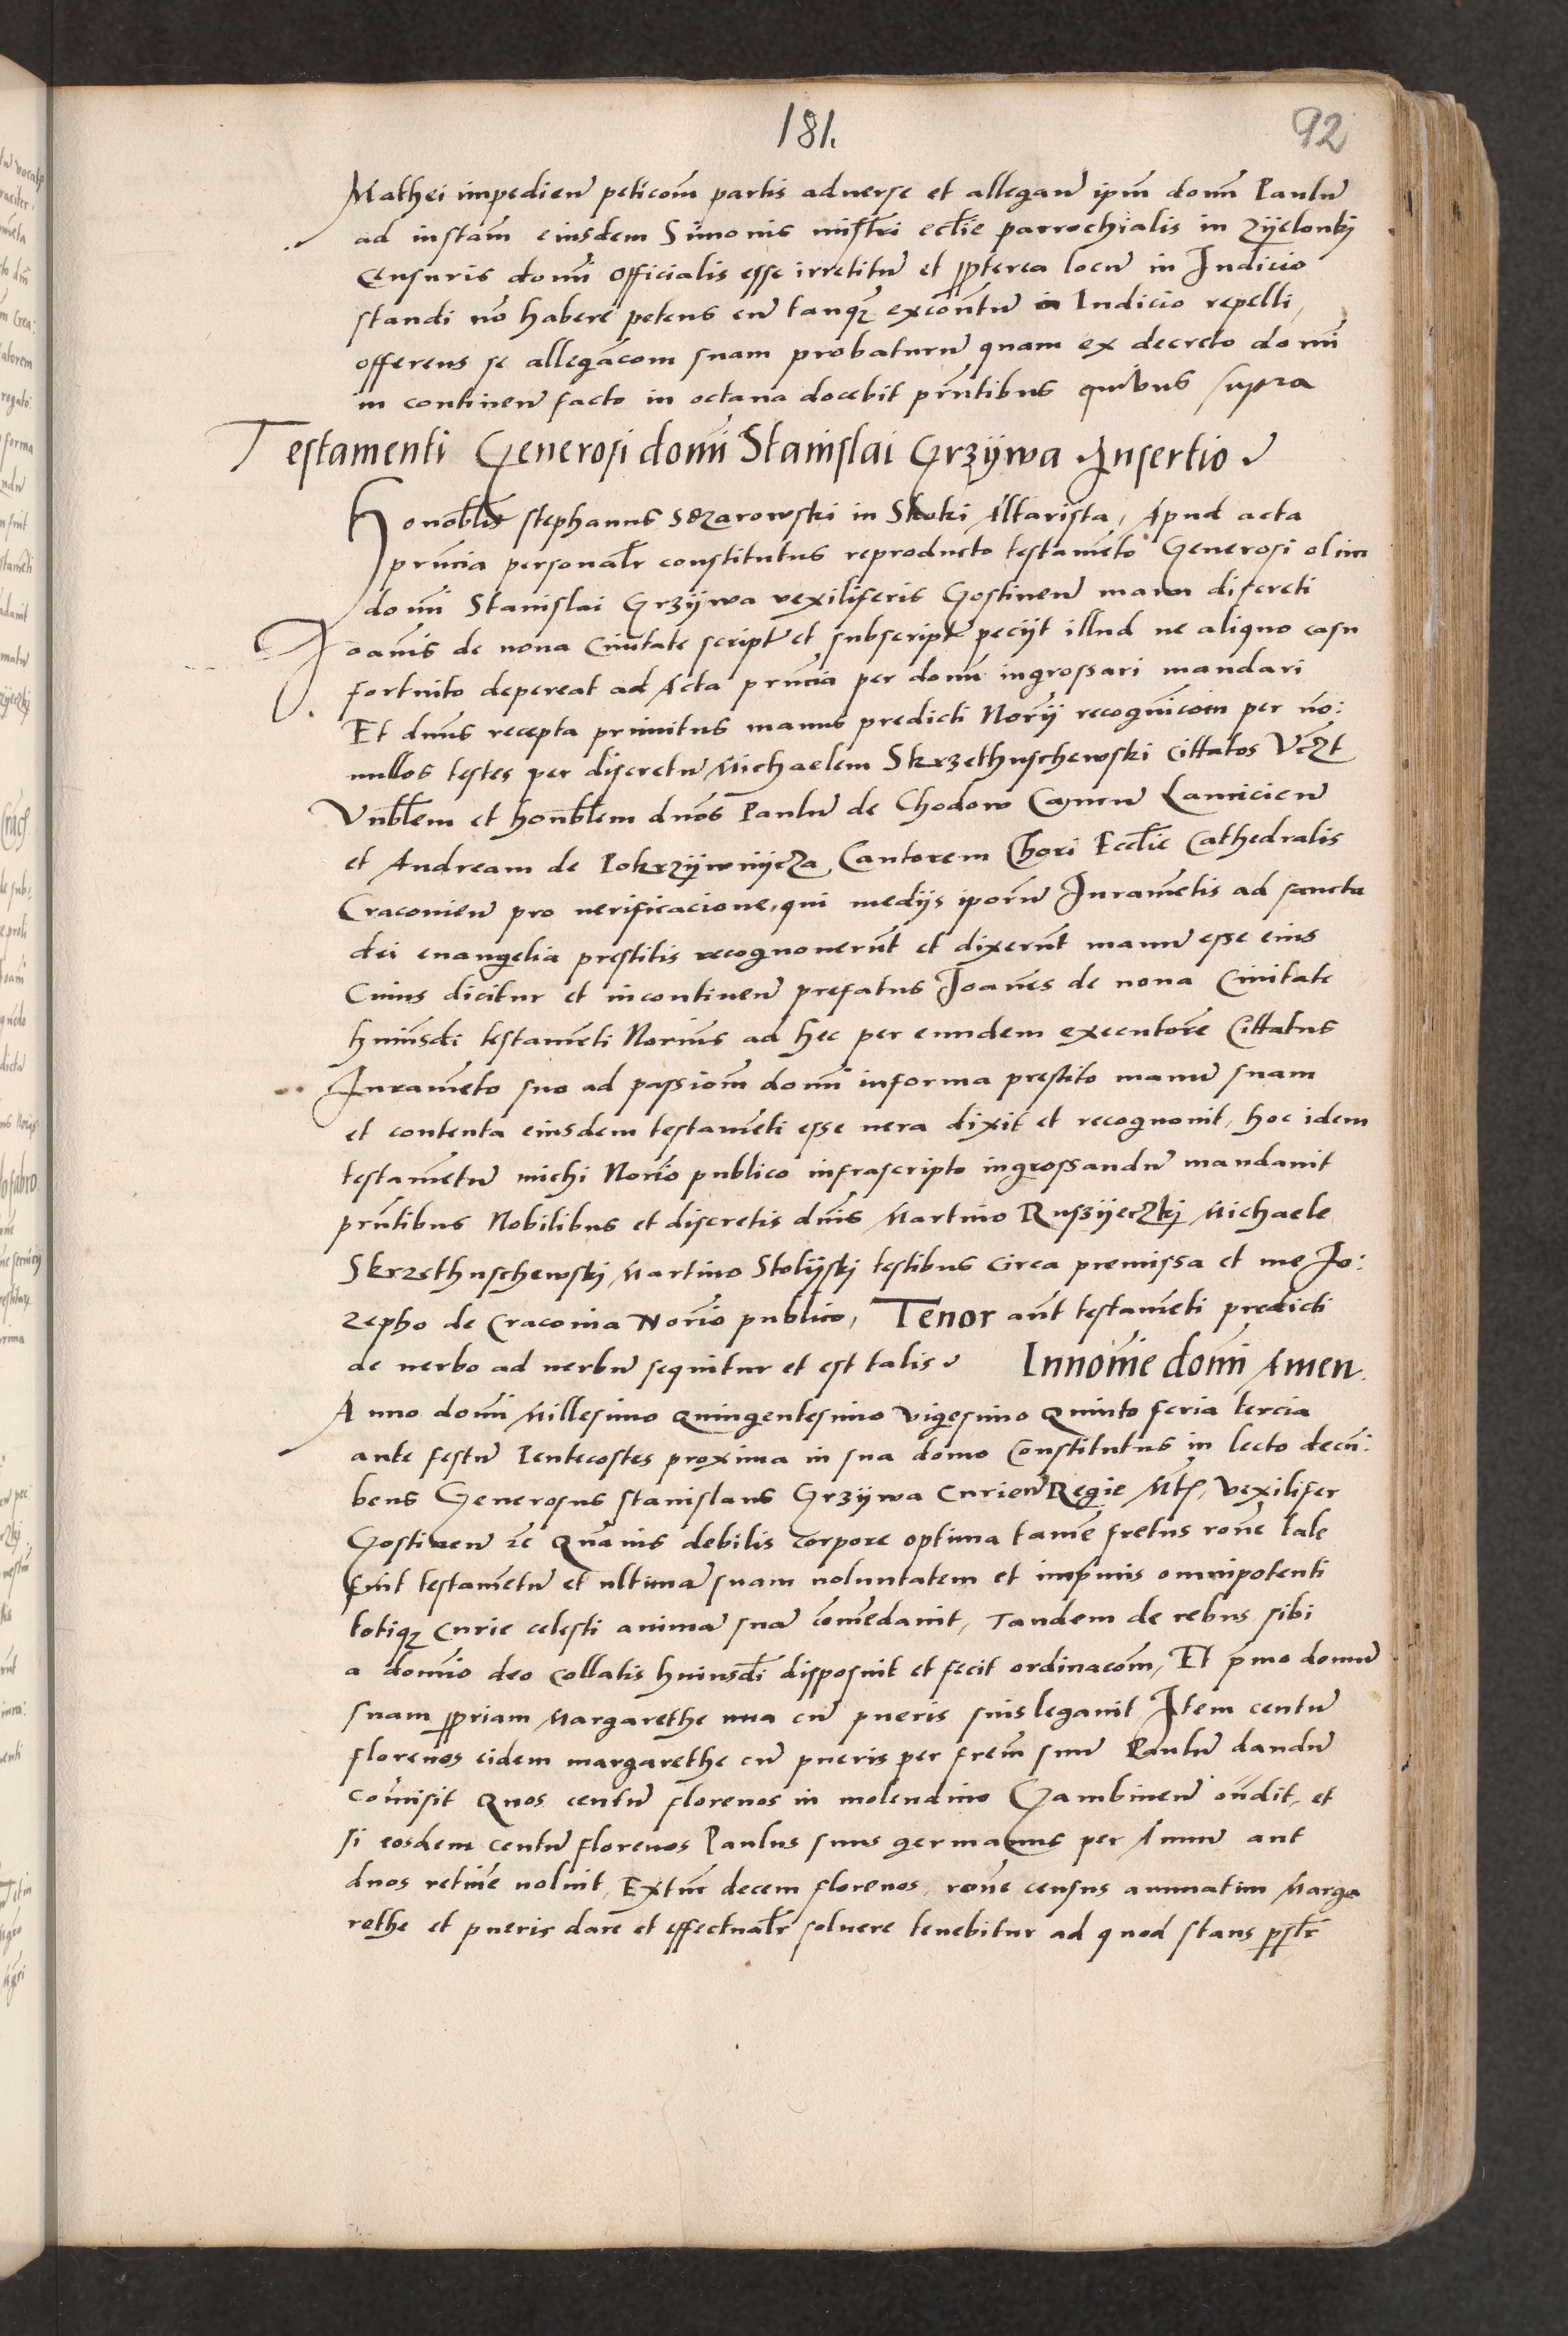 181.
92
Mathei impedien̄ peticom̄ partis aduerse et allegan̄ ipm̄ dom̄ Paulū
ad instam̄ eiusdem Simonis mistri ecclie parrochialis in Zijelonkj
Censuris domī officialis esse irretitū et ꝓpterea locū in Iudicio
standi nō habere petens eū tanqȝ excōntū a Iudicio repelli,
offerens se allegacom suam probaturū quam ex decreto domī
in continen̄ facto in octaua docebit prn̄tibus quibus supra
Testamenti Generosi domī Stanislai Grzijwa Insertio
Honoblis stephanus Sczarowski in Skoki Altarista, Apud acta
prn̄cia personalr̄ constitutus reproducto testamēto Generosi olim
domī Stanislai Grzijwa vexiliferis Gostinen̄ manu discreti
Joānis de noua Ciuitate script̄ et subscript̄ pecijt illud ne aliquo casu
fortuito depereat ad Acta prn̄cia per dom̄ ingrossari mandari
Et dnūs recepta primitus manus predicti Norij recognicom̄ per no:
nullos testes per discretū Michaelem Skrzethuschewski Cittatos Vczt
Vnblem et honblem dnos Paulū de Chodow Canon̄ Lancicien̄
et Andream de Pokrzijwnijcza Cantorem Chori Ecclie Cathedralis
Cracouien̄ pro uerificacione, qui medijs ipsorū Iuramētis ad sancta
dei euangelia prestitis recognouerūt et dixerūt manū esse eius
Cuius dicitur et incontinen̄ prefatus Joannes de noua Ciuitate
huiusdi testamēti Norius ad hec per eundem executorē Cittatus
Iuramēto suo ad passiom̄ domī informa prestito manū suam
et contenta eiusdem testamēti esse uera dixit et recognouit, hoc idem
testamētū michi Norio publico infrascripto ingrossandū mandauit
prn̄tibus Nobilibus et discretis dnīs Martino Ruszijeczkj Michaele
Skrzethuschewskj Martino Stolijskj testibus circa premissa et me Jo:
zepho de Cracouia Norio publico, Tenor aūt testamēti predicti
de uerbo ad uerbū sequitur et est talis Innomīe domī Amen.
Anno domī Millesimo Quingentesimo Vigesimo Quinto feria tercia
ante festū Pentecostes proxima in sua domo Constitutus in lecto decū:
bens Generosus stanislaus Grzijwa Curien̄ Regie Mtis, Vexilifer
Gostinen̄ ꝛc Quāuis debilis corpore optima tamē fretus ronē tale
testamētū et ultimā suam uoluntatem et imprimis omnipotenti
totiqȝ curie celesti animā suā comēdauit, Tandem de rebus sibi
a domīo deo collatis huiusdi disposuit et fecit ordinacom̄, Et pmo domū
suam ꝓpriam Margarethe una cū pueris suis legauit Item centū
florenos eidem margarethe cū pueris per frem̄ suū Paulū dandū
comīsit Quos centū florenos in molendino Gambinen̄ on̄dit, et
si eosdem centū florenos Paulus suus germanus per Annū aut
duos retinē uoluit, Extunc decem florenos, ronē census annuatim Marga
rethe et pueris dare et effectualr̄ soluere tenebitur ad quod stans